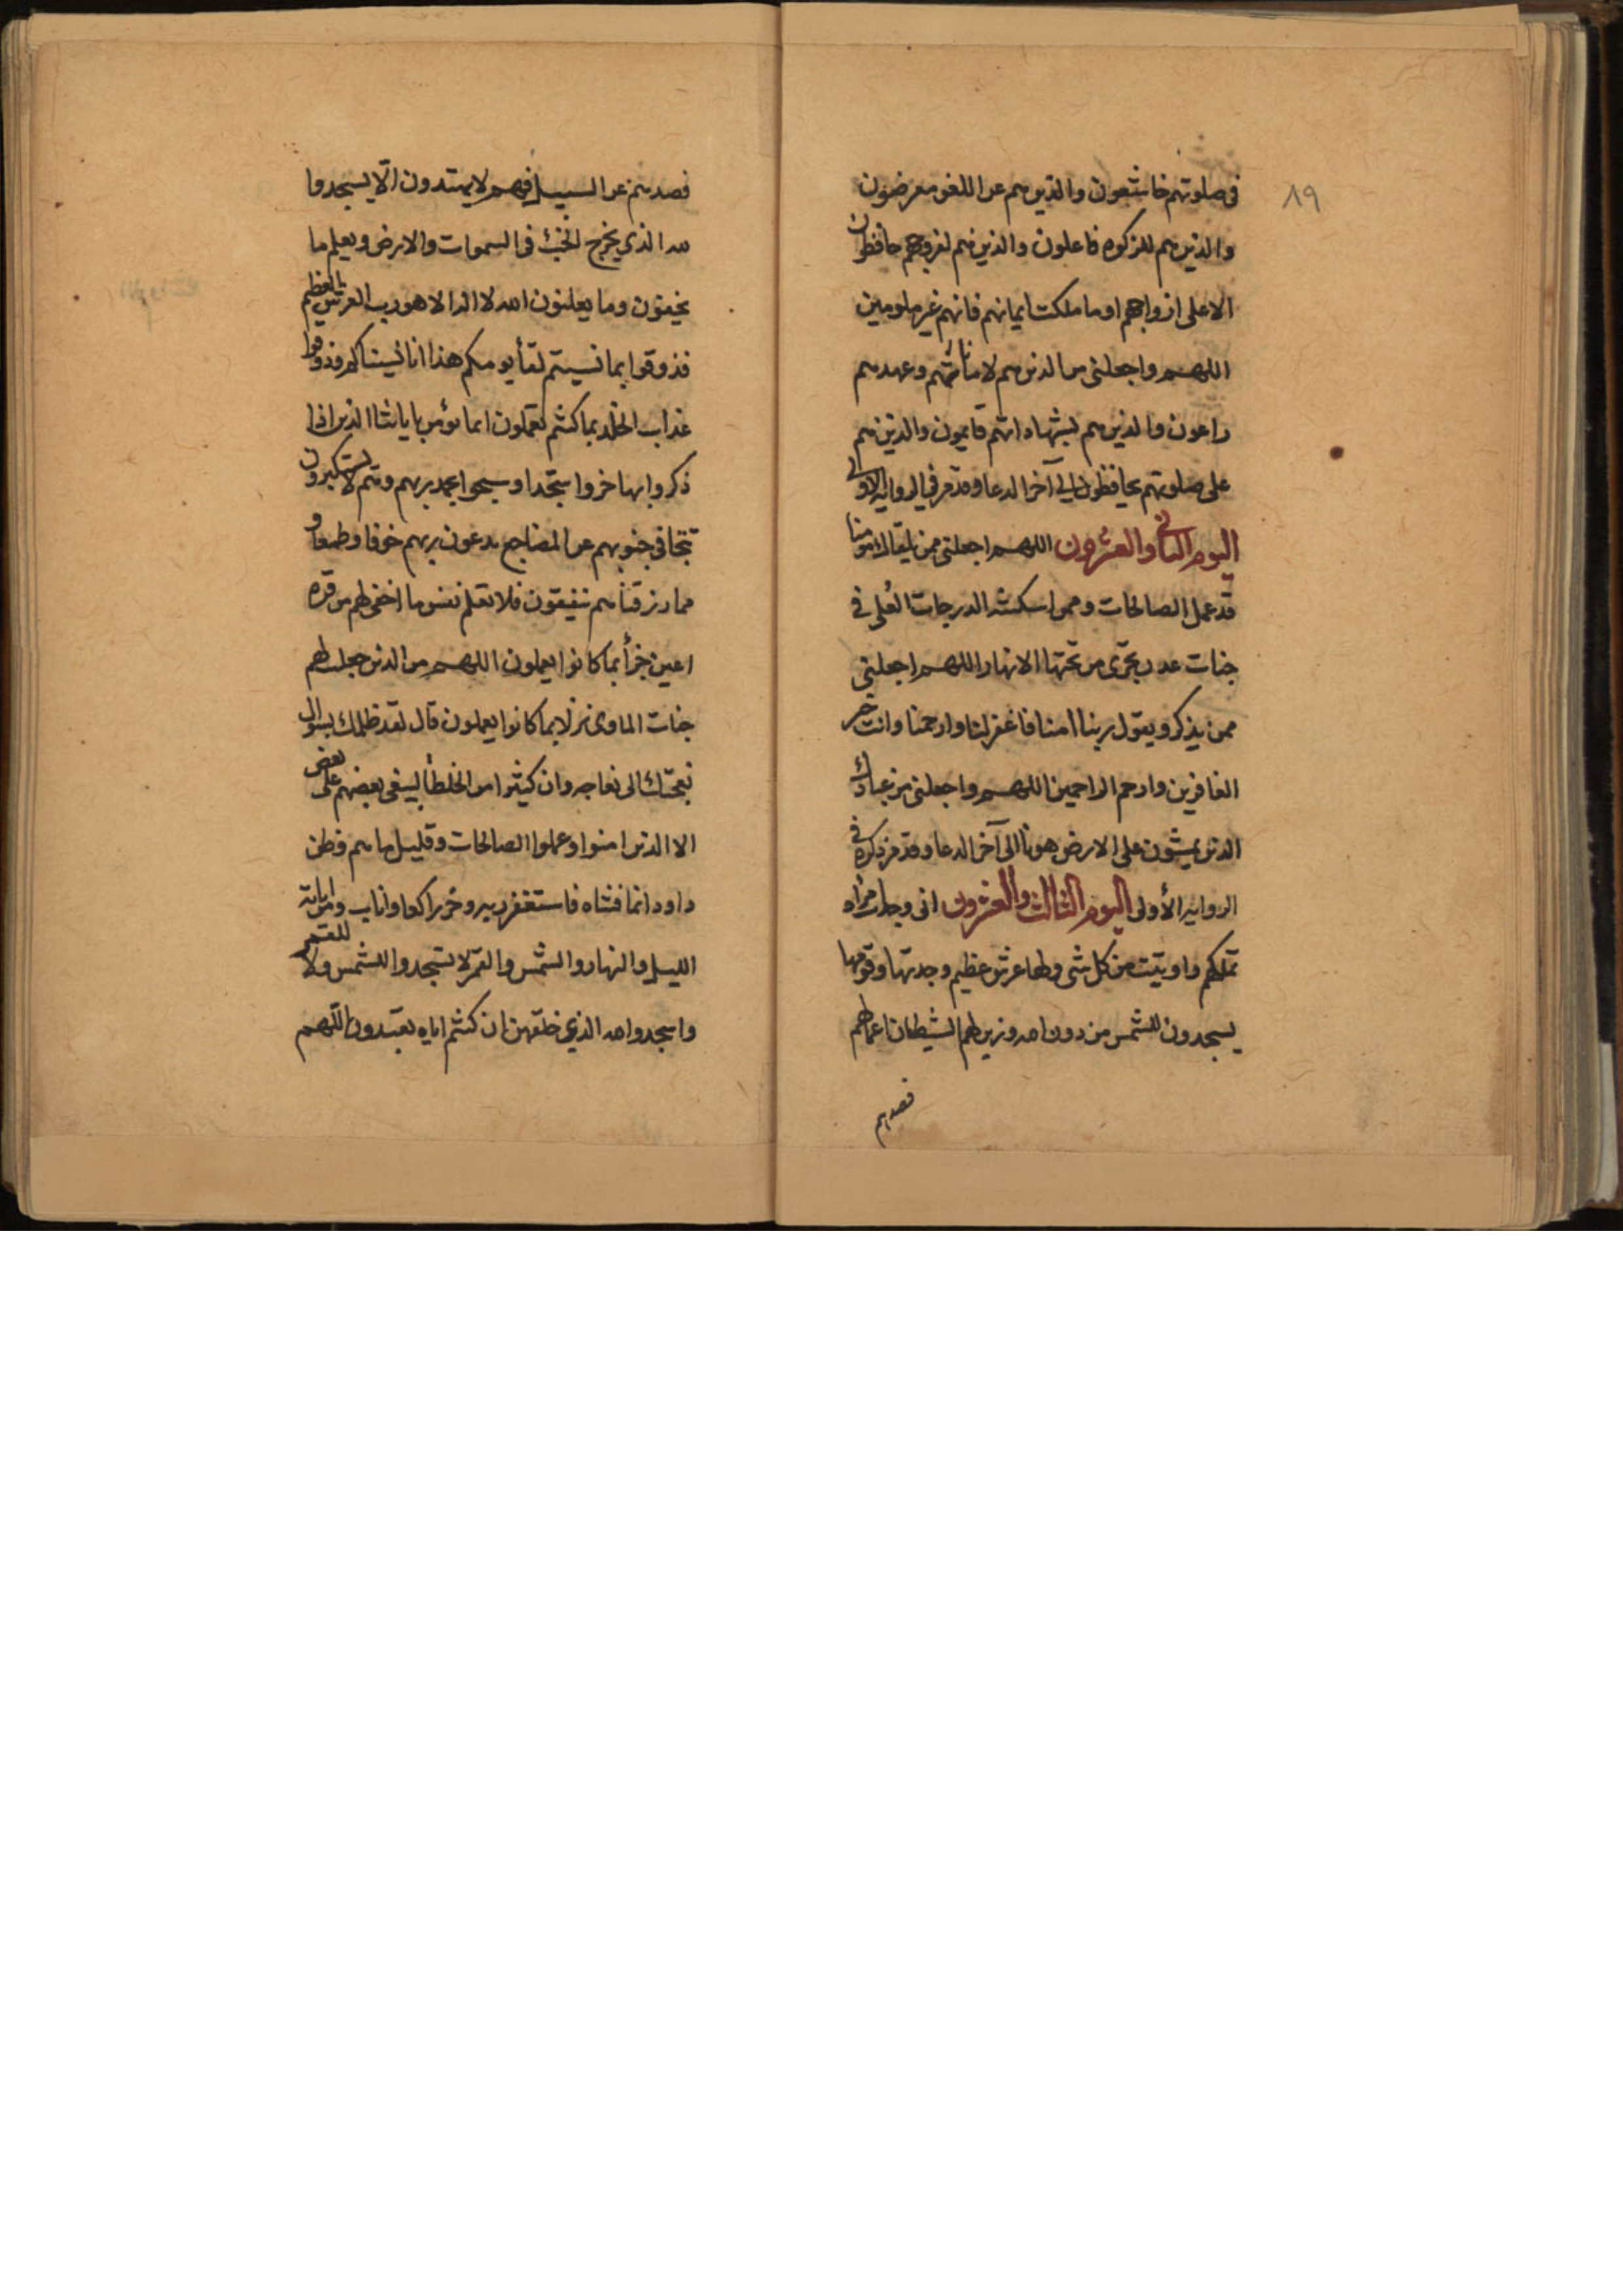 ١٩
فى صلوتهم خاشعون والذين هم عن اللغو معرضون
والذين هم للزكوه فاعلون والذين هم لفروجهم حافظون
الا على ازواجهم او ما ملكت ايمانهم فانهم غير ملومين
اللهم واجعلنى من الذين هم لاماناتهم وعهدهم
راعون والذين هم بشهاداتهم قايمون والذين هم
على صلوتهم يحافظون الى آخر الدعا وقد مر فى الروايه الاولى
اليوم الثانى والعشرون اللهم اجعلنى ممن يلقاك مومنا
قد عمل الصالحات وممن اسكنته الدرجات العلى فى
جنات عدن تجرى من تحتها الانهار اللهم اجعلنى
ممن يذكر ويقول ربنا امنا فاغفر لنا وارحمنا وانت خير
الغافرين وارحم الراحمين اللهم واجعلنى من عبادك
الذين يمشون على الارض هونا الى آخر الدعا وقد مر ذكره فى
الروايه الأولى اليوم الثالث والعشرون انى وجدت امرأة
تملكهم واوتيت من كل شى ولها عرش عظيم وجدتها وقومها
يسجدون للشمس من دون الله وزين لهم الشيطان اعمالهم
فصدهم
فصدهم عن السبيل فهم لا يهتدون الّا يسجدوا
لله الذى يخرج الخبئ فى السموات والارض ويعلم ما
يخفون وما يعلنون الله لا اله الا هو رب العرش العظيم
فذوقوا بما نسيتم لقأ يومكم هذا انا نسيناكم وذوقوا
عذاب الخلد بما كنتم تعملون انما يؤمن باياتنا الذين اذا
ذكروا بها خروا سجدا وسبحوا بحمد ربهم وهم لا يستكبرون
تتجافى جنوبهم عن المضاجع يدعون ربهم خوفا وطمعا و
مما رزقناهم ينفقون فلا تعلم نفس ما اخفى لهم من قره
اعين جزأ بما كانوا يعملون اللهم من الذين جعلت لهم
جنات الماوى نزلا بما كانوا يعملون قال لقد ظلمك بسوال
نعجتك الى نعاجه وان كثيرا من الخلطأ ليبغى بعضهم على بعض
الا الذين امنوا وعملوا الصالحات وقليل ما هم وظن
داود انما فتناه فاستغفر ربه وخر راكعا واناب ومن اياته
الليل والنهار والشمس والقمر لا تسجدوا للشمس ولا للقمر
واسجدوا لله الذى خلقهن ان كنتم اياه تعبدون اللهم